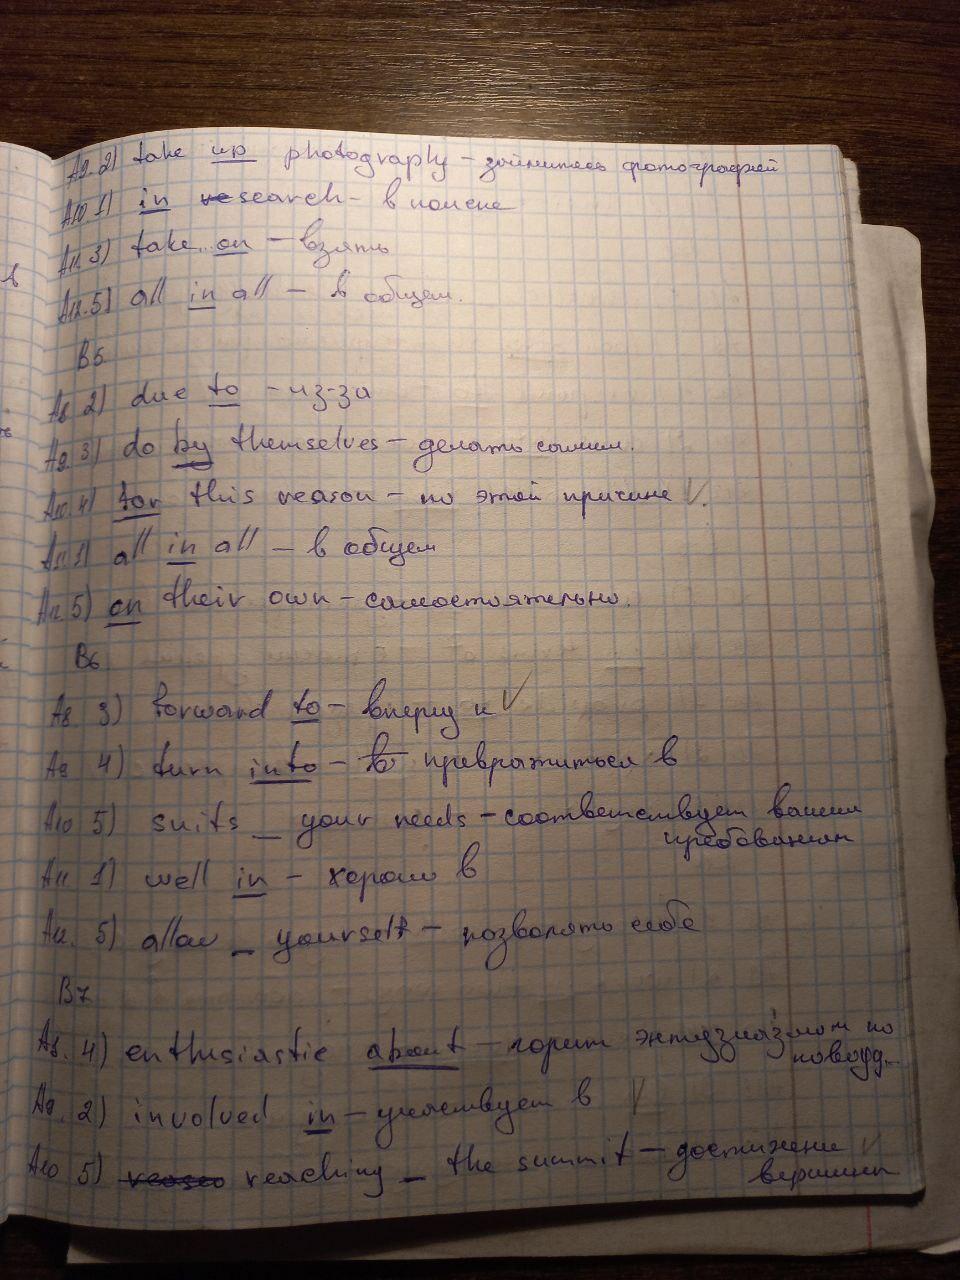 А9. 2) take up photography – займитесь фотографией
А10. 1) in search – в поиске
А11. 3) take on – взять
А12. 5) all in all – в общем.
В5
А8 2) due to – из-за
А9. 3) do by themselves – делать самим.
А10. 4) for this reason – по этой причине ✓.
А11. 1) all in all – в общем
А12. 5) on their own – самостоятельно.
В6
А8. 3) forward to – вперед к ✓
А9 4) turn into – превратиться в
А10 5) suits _ your needs – соответствует вашим
требованиям
А11 1) well in – хорошо в
А12. 5) allow _ yourself – позволять себе
В7
А8. 4) enthusiastic about – горит энтузиазмом по
поводу..
А9. 2) involved in – участвует в ✓
А10 5) reaching _ the summit – достижение ✓
вершины